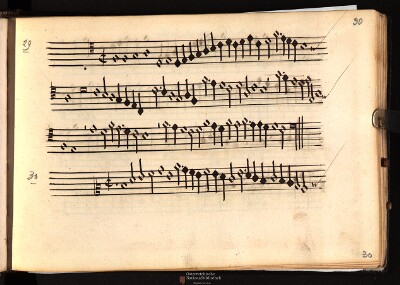 29
30
30
30
Österreichische
Nationalbibliothek